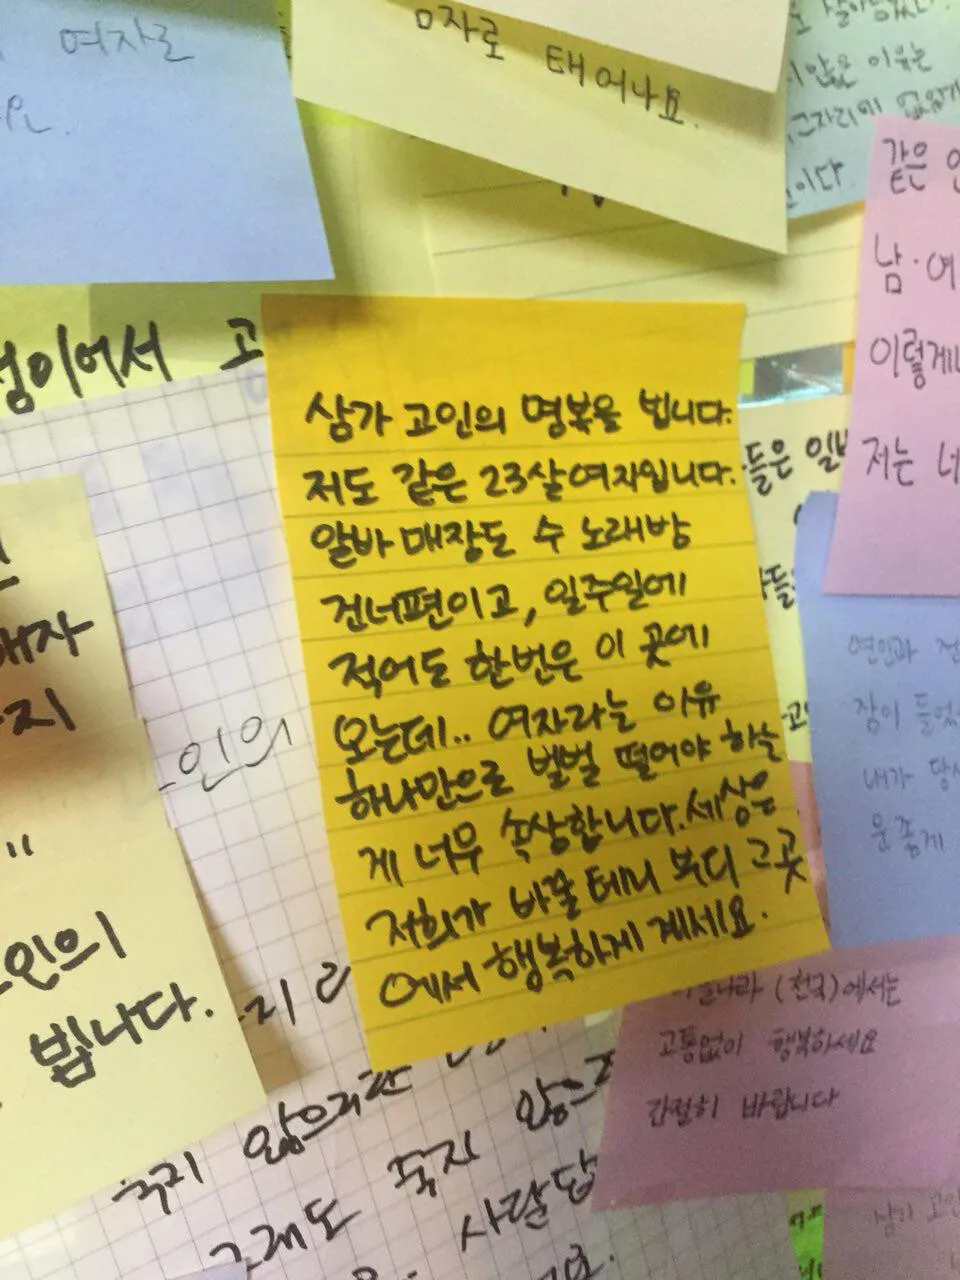 여자로
ㅁ자로 태어나요.
않은 이유는
이다.
같은
남·여
이렇게
저는 너
정이어서 고
삼가 고인의 명복을 빕니다.
저도 같은 23살 여자입니다.
알바 매장도 수 노래방
건너편이고, 일주일에
적어도 한번은 이 곳에
오는데.. 여자라는 이유
하나만으로 벌벌 떨어야 하는
게 너무 속상합니다. 세상은
저희가 바꿀 테니 부디 그곳
에서 행복하게 계세요.
들은 일
인의
고인의
빕니다.
연인과
내가 당
운좋게
(천국)에서는
고통없이 행복하세요
간절히 바랍니다
그래도 죽지 않
사람답
삼가 고인